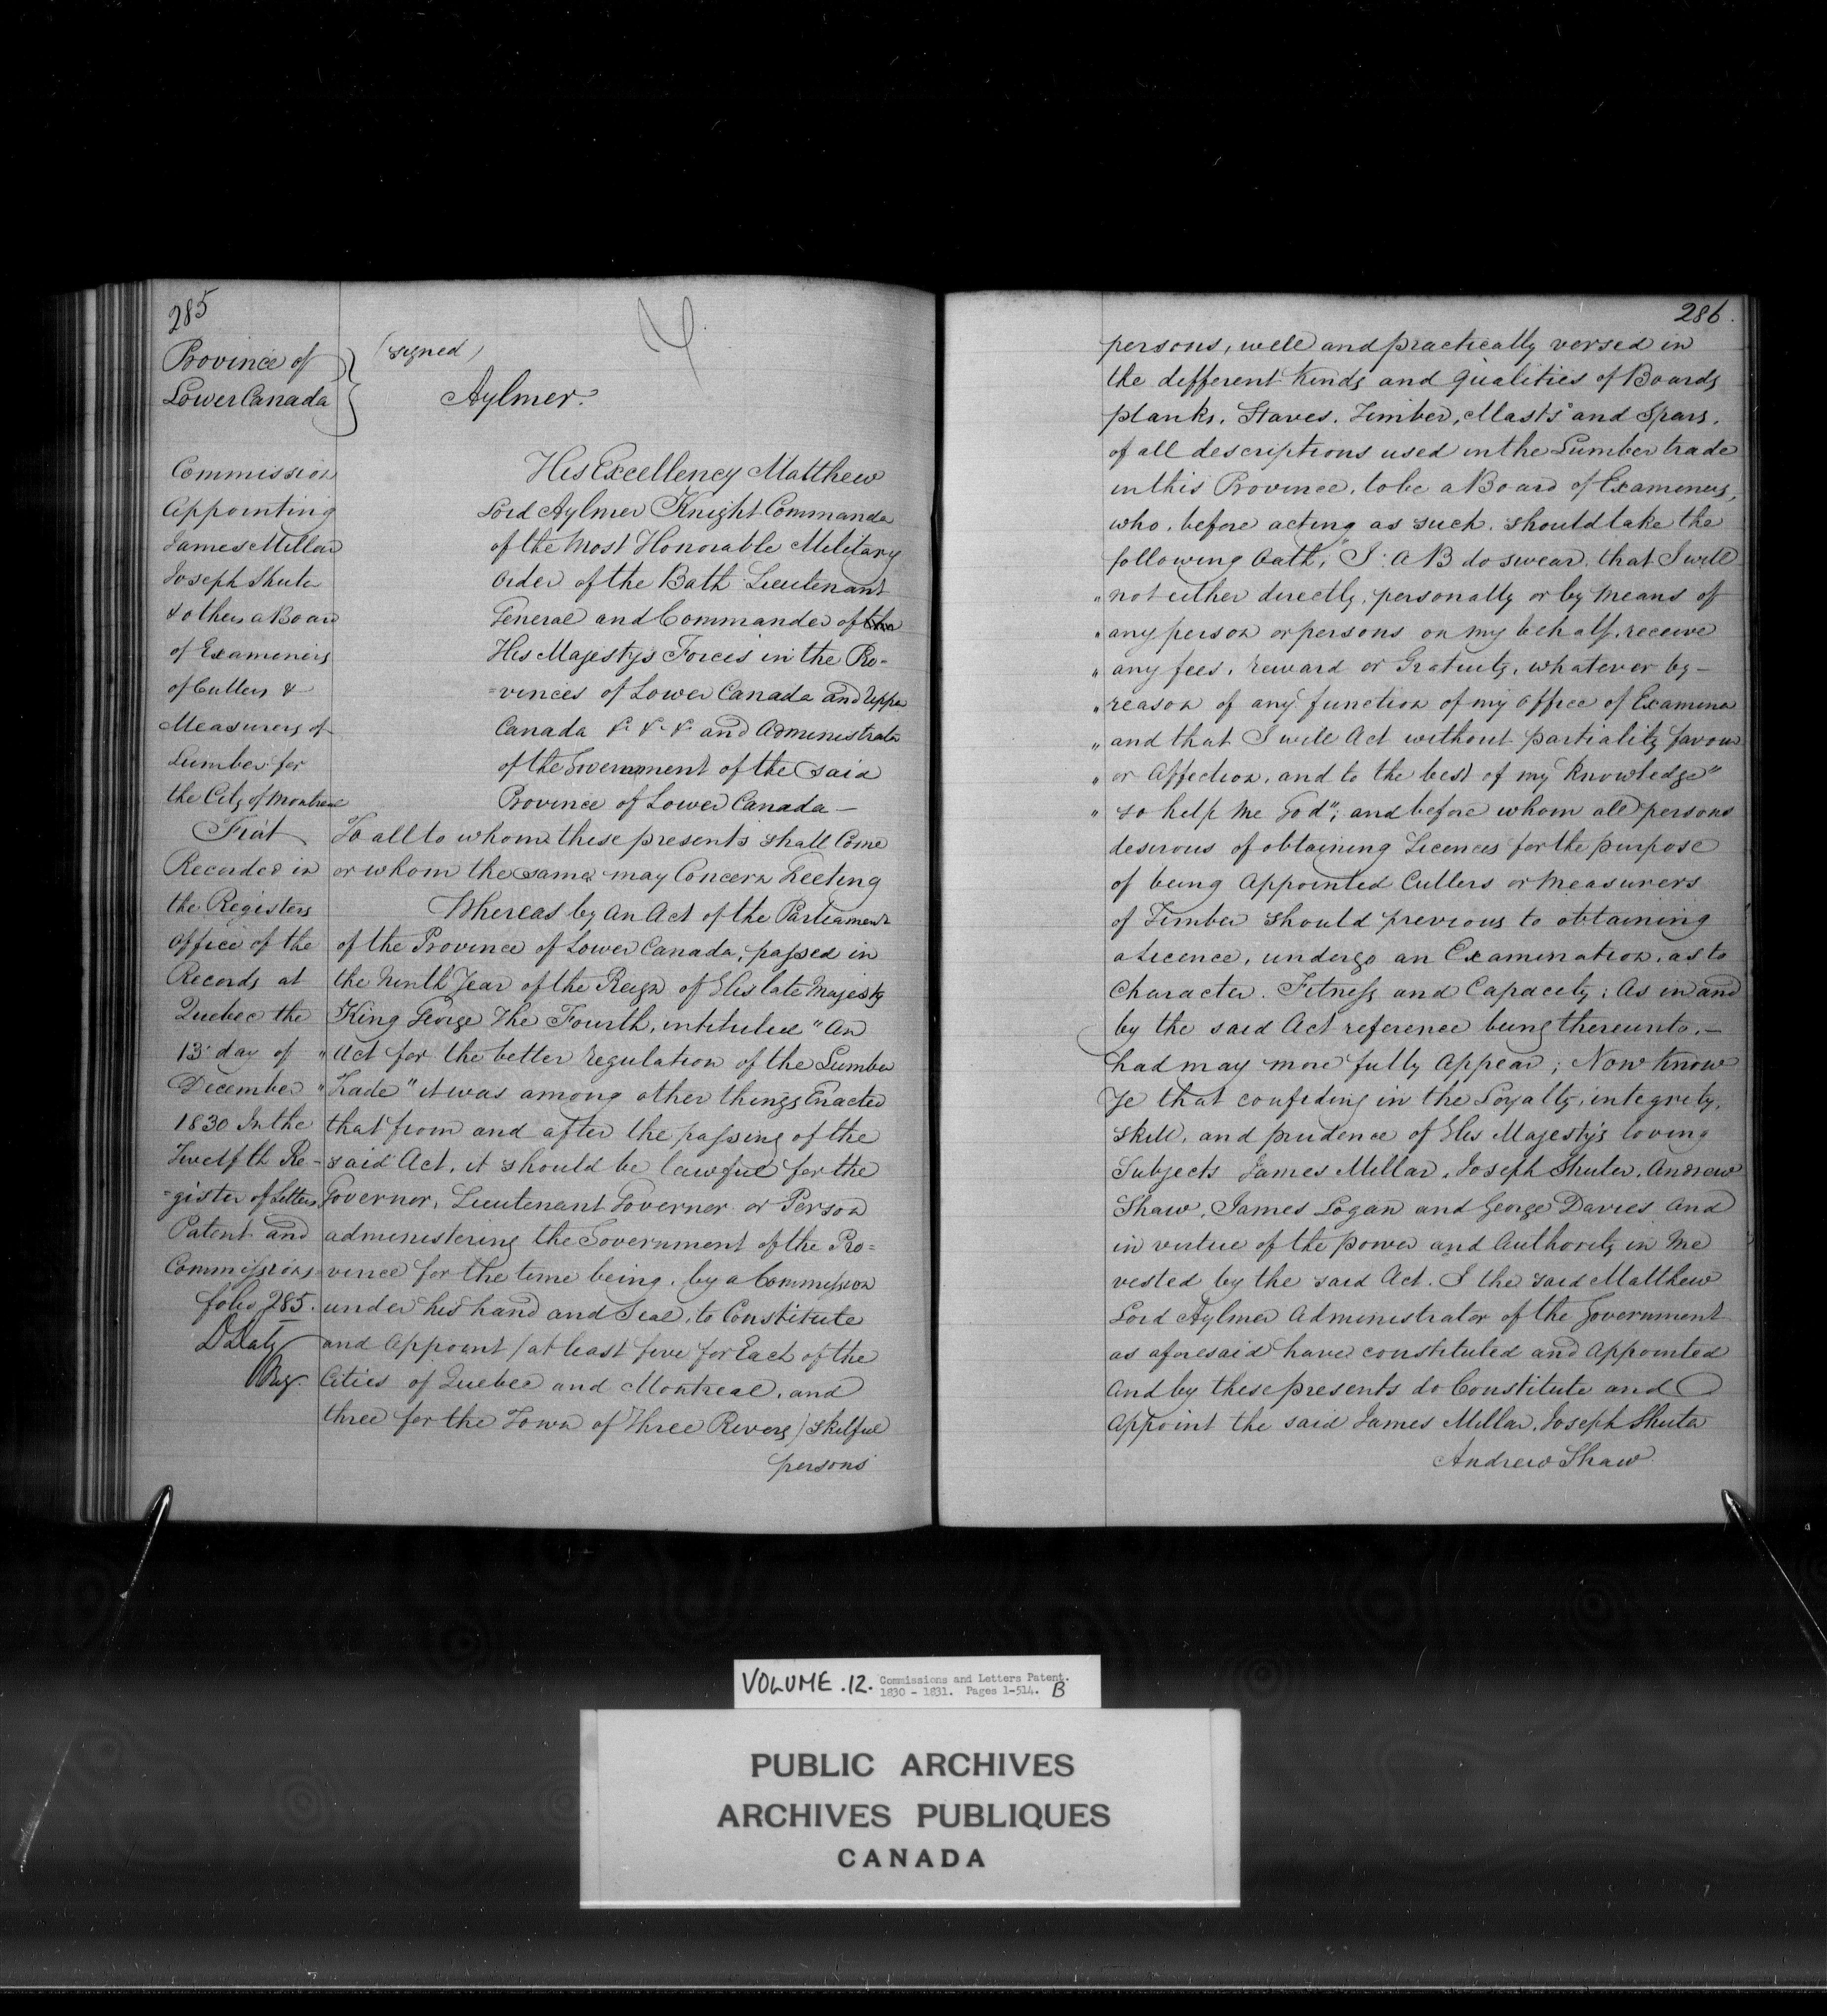 285
Province of
Lower Canada
(signed)
Aylmer.
Commission
Appointing
James Millar
Joseph Shuter
& others a Board
of Examiners
of Cullers &
Measurers of
Lumber for
the City of Montreal
Fiat
Recorded in
the Registers
Office of the
Records at
Quebec the
13 day of
December
1830 In the
Twelfth Re-
=gister of Letters
Patent and
Commissions
folio 285.
D Daly
Reg.
His Excellency Matthew
Lord Aylmer Knight Commander
of the Most Honorable Military
Order of the Bath Lieutenant
General and Commander of the
His Majesty's Forces in the Pro-
=vinces of Lower Canada and Upper
Canada &. &. & and Administrator
of the Government of the said
Province of Lower Canada —
To all to whom these presents shall Come
or whom the same may Concern Greeting
Whereas by An Act of the Parliament
of the Province of Lower Canada, passed in
the Ninth Year of the Reign of His late Majesty
King George The Fourth, intituled "An
" Act for the better regulation of the Lumber
" Trade" it was among other things Enacted
that from and after the passing of the
said Act, it should be lawful for the
Governor, Lieutenant Governor or Person
administering the Government of the Pro=
vince for the time being, by a Commission
under his hand and Seal, to Constitute
and Appoint / at least five for Each of the
Cities of Quebec and Montreal, and
three for the Town of Three Rivers / skilful
persons
286.
persons, well and practically versed in
the different Kinds and Qualities of Boards
planks, Staves, Timber, Masts and Spars,
of all descriptions used in the Lumber trade
in this Province, to be a Board of Examiners,
who, before acting as such, should take the
following Oath, "I. A B do swear, that I will
" not either directly, personally or by Means of
" any person or persons on my behalf, receive
" any fees, reward or Gratuity, whatever by —
" reason of any function of my Office of Examiner
" and that I will Act without partiality favour
" or Affection, and to the best of my Knowledge"
" so help Me God"; and before whom all persons
desirous of obtaining Licences for the purpose
of being Appointed Cullers or Measurers
of Timber should previous to obtaining
a Licence, undergo an Examination, as to
Character. Fitness and Capacity; As in and
by the said Act reference being thereunto. —
had may more fully Appear; Now Know
Ye that confiding in the Loyalty, integrity,
skill, and prudence of His Majesty's loving
Subjects James Millar, Joseph Shuter, Andrew
Shaw, James Logan and George Davies And
in virtue of the power and Authority in Me
vested by the said Act. I the said Matthew
Lord Aylmer Administrator of the Government
as aforesaid have constituted and Appointed
And by these presents do Constitute and
Appoint the said James Millar, Joseph Shuter
Andrew Shaw
VOLUME .12. Commissions and Letters Patent.
1830 - 1831. Pages 1-514. B
PUBLIC ARCHIVES
ARCHIVES PUBLIQUES
CANADA